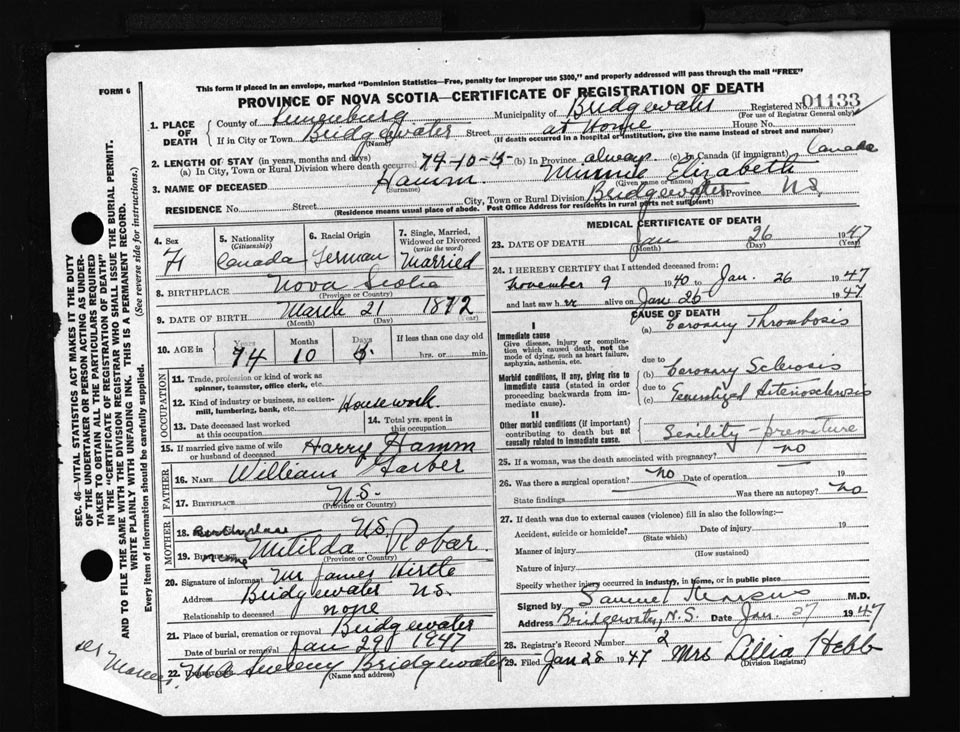 FORM 6
This form if placed in an envelope, marked "Dominion Statistics—Free, penalty for improper use $300," and properly addressed will pass through the mail "FREE"
PROVINCE OF NOVA SCOTIA—CERTIFICATE OF REGISTRATION OF DEATH
Registered No. 01133
(For use of Registrar General only)
1. PLACE OF DEATH
County of Lunenburg Municipality of Bridgewater
If in City or Town Bridgewater Street at Home House No.
(Name) (If death occurred in a hospital or institution, give the name instead of street and number)
2. LENGTH OF STAY (in years, months and days)
(a) In City, Town or Rural Division where death occurred 74-10-5 (b) In Province always (c) In Canada (if immigrant) Canada
3. NAME OF DECEASED Hamm Minnie Elizabeth
(Surname) (Given name or names)
RESIDENCE No. Street City, Town or Rural Division Bridgewater Province N.S.
(Residence means usual place of abode. Post Office Address for residents in rural parts not sufficient)
4. Sex F
5. Nationality (Citizenship) Canada
6. Racial Origin German
7. Single, Married, Widowed or Divorced (write the word) Married
8. BIRTHPLACE Nova Scotia
(Province or Country)
9. DATE OF BIRTH March 21 1872
(Month) (Day) (Year)
10. AGE in Years Months Days If less than one day old
74 10 5 hrs. or min.
OCCUPATION
11. Trade, profession or kind of work as spinner, teamster, office clerk, etc.
12. Kind of industry or business, as cotton-mill, lumbering, bank, etc. Housework
13. Date deceased last worked at this occupation
14. Total yrs. spent in this occupation
15. If married give name of wife or husband of deceased Harry Hamm
FATHER
16. NAME William Garber
17. BIRTHPLACE N.S.
(Province or Country)
MOTHER
18. Birthplace N.S.
19. Name Mitilda Robar
(Province or Country)
20. Signature of informant Mr James Hirtle
Address Bridgewater N.S.
Relationship to deceased none
21. Place of burial, cremation or removal Bridgewater
Date of burial or removal Jan 29 1947
22. Sweeny Bridgewater
(Name and address)
MEDICAL CERTIFICATE OF DEATH
23. DATE OF DEATH Jan 26 1947
(Month) (Day) (Year)
24. I HEREBY CERTIFY that I attended deceased from:
November 9 1940 to Jan. 26 1947
and last saw her alive on Jan 26 1947
CAUSE OF DEATH
I
Immediate cause
Give disease, injury or complication which caused death, not the mode of dying, such as heart failure, asphyxia, asthenia, etc.
(a) Coronary Thrombosis
due to
Morbid conditions, if any, giving rise to immediate cause (stated in order proceeding backwards from immediate cause).
(b) Coronary Sclerosis
due to
(c) Generalized Arteriosclerosis
II
Other morbid conditions (if important) contributing to death but not causally related to immediate cause.
Senility - premature
25. If a woman, was the death associated with pregnancy? no
26. Was there a surgical operation? no Date of operation 19
State findings Was there an autopsy? No
27. If death was due to external causes (violence) fill in also the following:—
Accident, suicide or homicide? Date of injury 19
(State which)
Manner of injury
(How sustained)
Nature of injury
Specify whether injury occurred in industry, in home, or in public place
Signed by Samuel M.D.
Address Bridgewater, N.S. Date Jan. 27 1947
28. Registrar's Record Number 2
29. Filed Jan 28 1947 Mrs Lillia Hebb
(Division Registrar)
SEC. 46—VITAL STATISTICS ACT MAKES IT THE DUTY
OF THE UNDERTAKER OR PERSON ACTING AS UNDERTAKER TO OBTAIN ALL THE PARTICULARS REQUIRED
IN THE "CERTIFICATE OF REGISTRATION OF DEATH"
AND TO FILE THE SAME WITH THE DIVISION REGISTRAR WHO SHALL ISSUE THE BURIAL PERMIT.
WRITE PLAINLY WITH UNFADING INK. THIS IS A PERMANENT RECORD.
Every item of information should be carefully supplied. (See reverse side for instructions.)